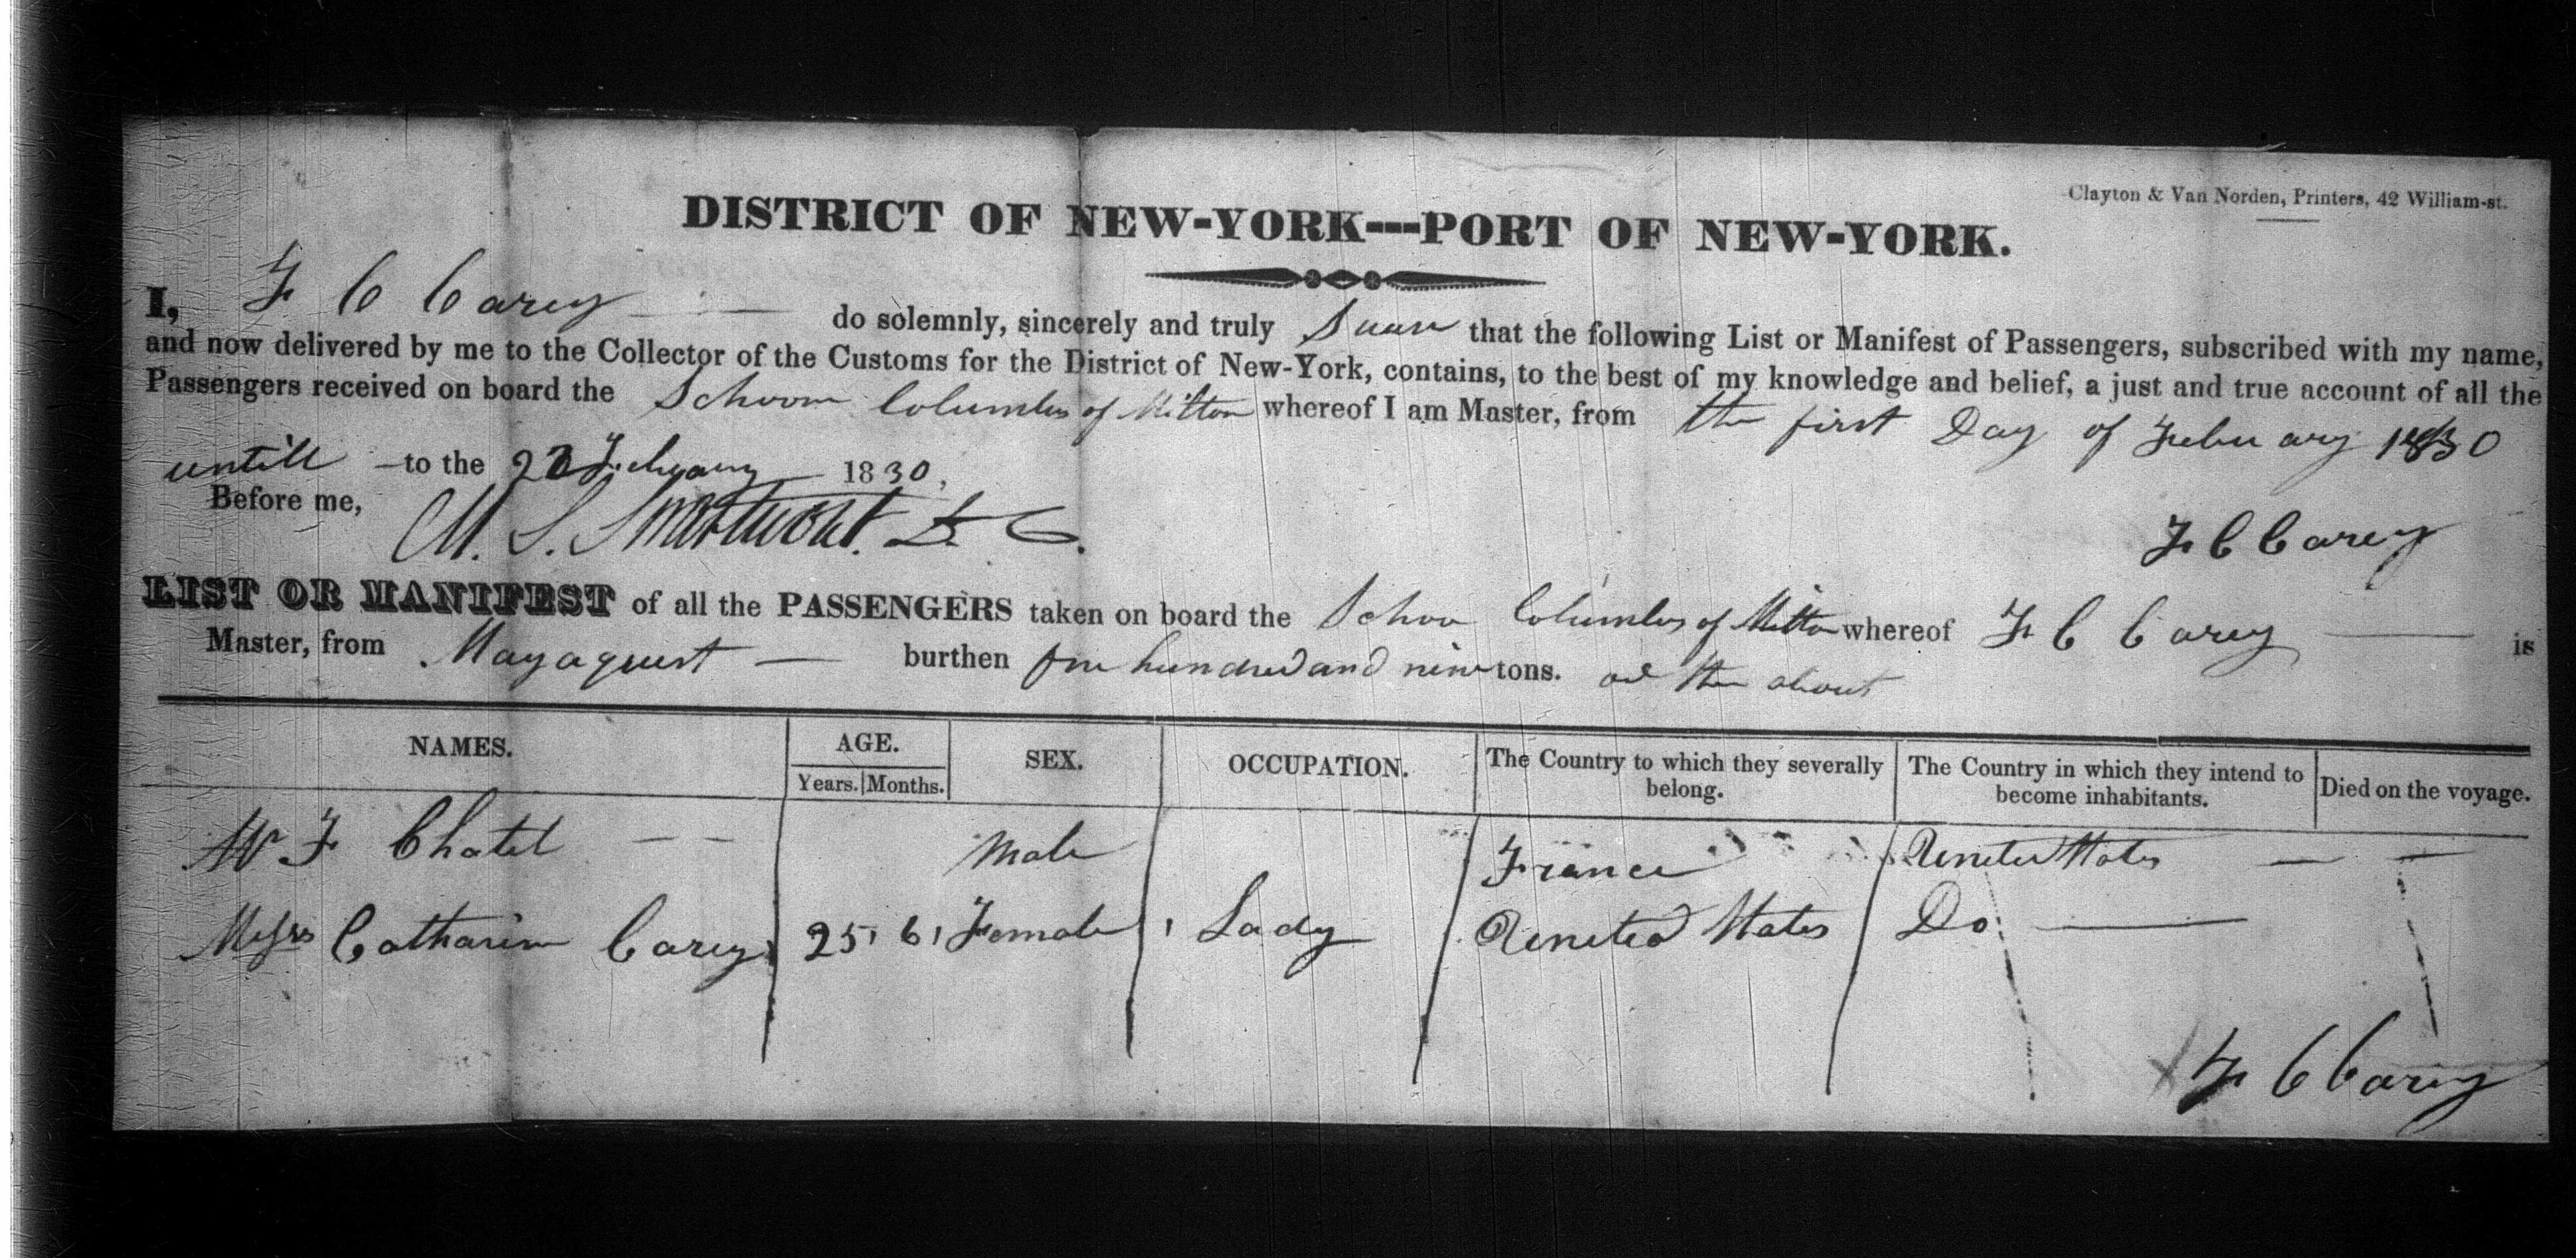 Clayton & Van Norden, Printers, 42 William-st.
DISTRICT OF NEW-YORK---PORT OF NEW-YORK.
I, F C Carey do solemnly, sincerely and truly that the following List or Manifest of Passengers, subscribed with my name,
and now delivered by me to the Collector of the Customs for the District of New-York, contains, to the best of my knowledge and belief, a just and true account of all the
Passengers received on board the Schoon Columbus of Milton whereof I am Master, from the first Day of 1830
untill to the 1830,
Before me,
M. S. Swartwout. D. C.
F C Carey
LIST OR MANIFEST of all the PASSENGERS taken on board the Schoo Columbus of whereof F C Carey is
Master, from burthen hundred and nine tons.
NAMES. AGE. SEX. OCCUPATION. The Country to which they severally belong. The Country in which they intend to become inhabitants. Died on the voyage.
Years. Months.
Mr F Chatel Male France United States
Catharin Carey 25, 6, Female, Lady United States Do
F C Carey